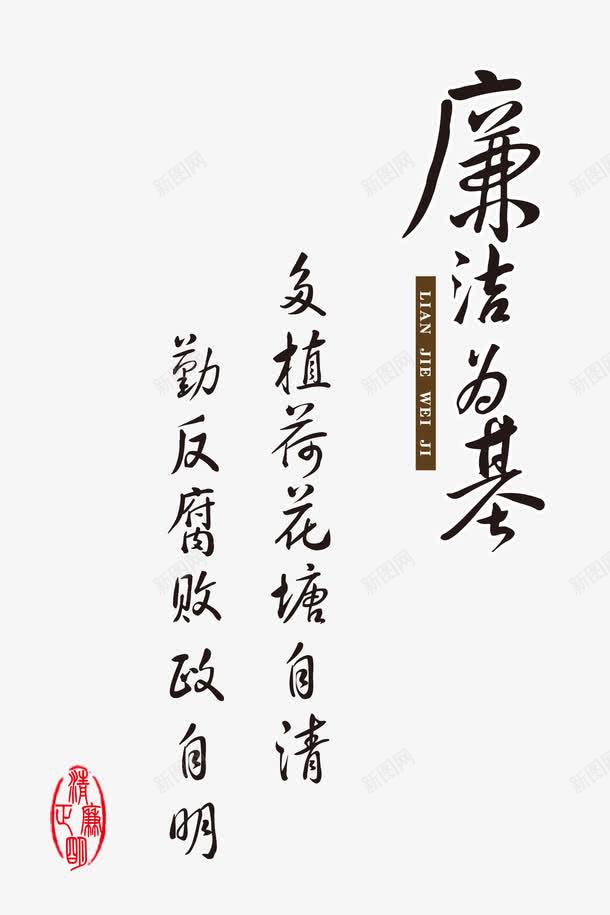 廉洁为基
LIAN JIE WEI JI
多植荷花塘自清
勤反腐败政自明
清廉
正明
新图网